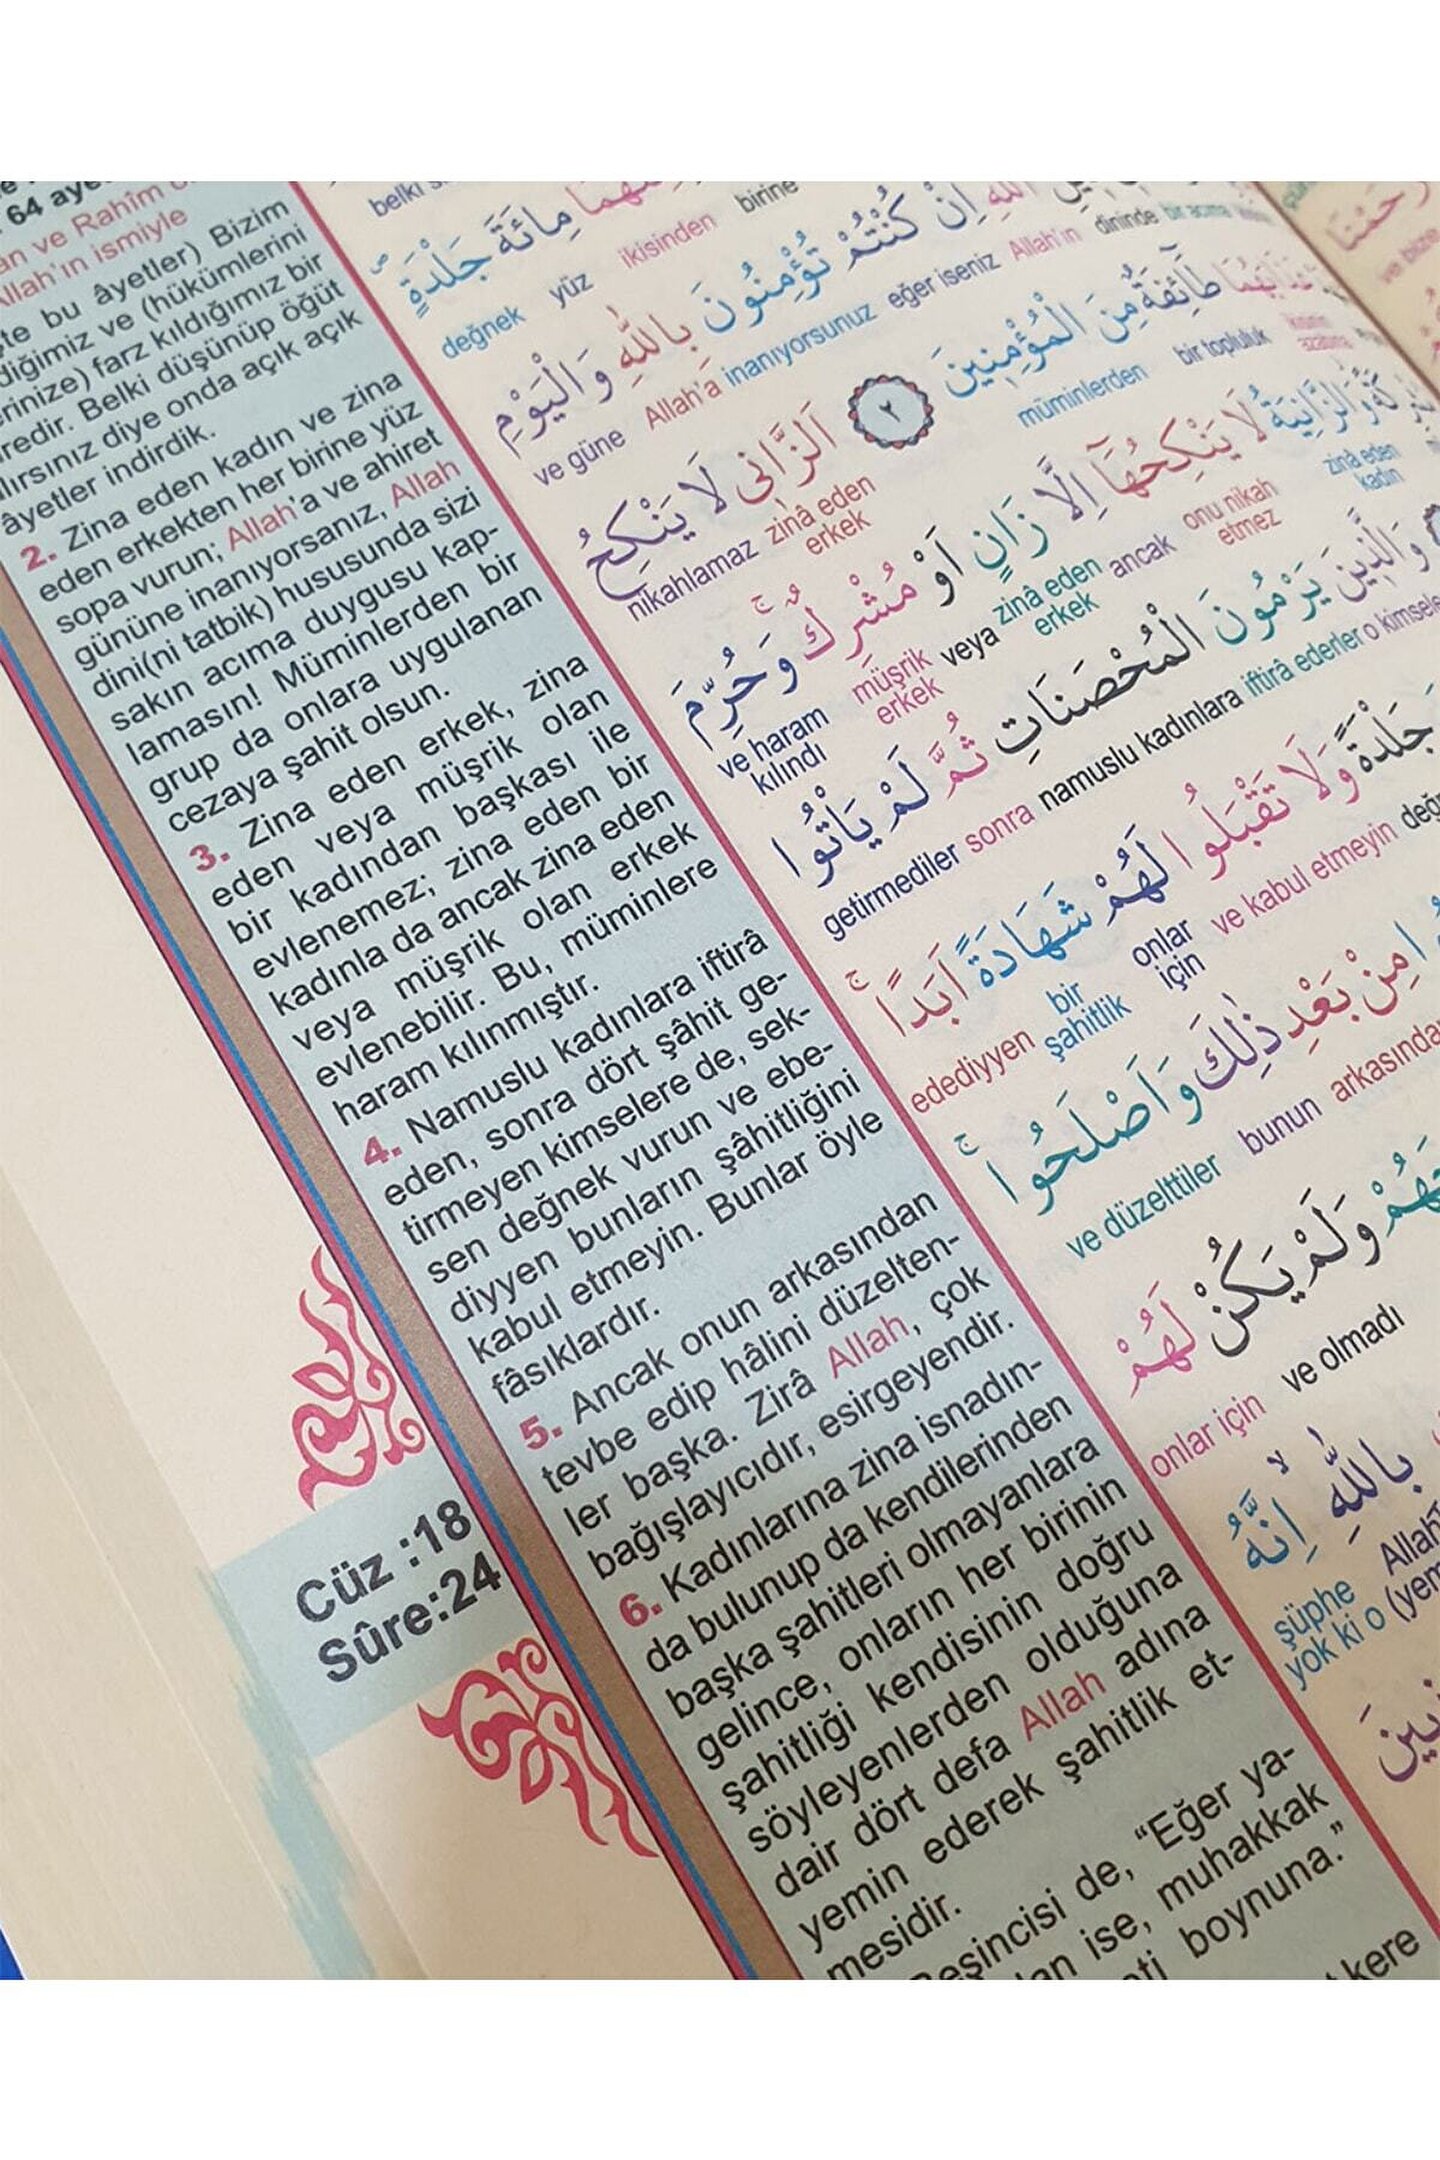 64
an ve Rahîm
Allah'ın ismiyle
bu âyetler) Bizim
diğimiz ve (hükümlerini
farz kıldığımız bir
Belki düşünüp öğüt
diye onda açık açık
âyetler indirdik.
2. Zina eden kadın ve zina
eden erkekten her birine yüz
sopa vurun; Allah'a ve ahiret
gününe inanıyorsanız, Allah
dini(ni tatbik) hususunda sizi
sakın acıma duygusu kap-
lamasın! Müminlerden bir
grup da onlara uygulanan
cezaya şahit olsun.
3. Zina eden erkek, zina
eden veya müşrik olan
bir kadından başkası ile
evlenemez; zina eden bir
kadınla da ancak zina eden
veya müşrik olan erkek
evlenebilir. Bu, müminlere
haram kılınmıştır.
4. Namuslu kadınlara iftirâ
eden, sonra dört şâhit ge-
tirmeyen kimselere de, sek-
sen değnek vurun ve ebe-
diyyen bunların şâhitliğini
kabul etmeyin. Bunlar öyle
fâsıklardır.
5. Ancak onun arkasından
tevbe edip hâlini düzelten-
ler başka. Zirâ Allah, çok
bağışlayıcıdır, esirgeyendir.
6. Kadınlarına zina isnadın-
da bulunup da kendilerinden
başka şahitleri olmayanlara
gelince, onların her birinin
şahitliği kendisinin doğru
söyleyenlerden olduğuna
dair dört defa Allah adına
yemin ederek şahitlik et-
mesidir.
Beşincisi de, “Eğer ya-
ise, muhakkak
boynuna.”
kere
Cüz :18
Sûre:24
belki
مِائَةَ جَلْدَةٍ
birine ikisinden yüz değnek
اِنْ كُنْتُمْ تُؤْمِنُونَ بِاللّٰهِ وَالْيَوْمِ
dininde Allah'ın eğer iseniz inanıyorsunuz Allah'a ve güne
طَٓائِفَةٌ مِنَ الْمُؤْمِنٖينَ ﴿٢﴾ اَلزَّانٖى لَا يَنْكِحُ
bir topluluk müminlerden zinâ eden erkek nikahlamaz
لَا يَنْكِحُهَٓا اِلَّا زَانٍ اَوْ مُشْرِكٌ وَحُرِّمَ
zinâ eden kadın onu nikah etmez ancak zinâ eden erkek veya müşrik erkek ve haram kılındı
وَالَّذٖينَ يَرْمُونَ الْمُحْصَنَاتِ ثُمَّ لَمْ يَأْتُوا
iftirâ ederler namuslu kadınlara sonra getirmediler
جَلْدَةً وَلَا تَقْبَلُوا لَهُمْ شَهَادَةً اَبَدًا
ve kabul etmeyin onlar için bir şahitlik edediyyen
مِنْ بَعْدِ ذٰلِكَ وَاَصْلَحُوا
arkasından bunun ve düzelttiler
وَلَمْ يَكُنْ لَهُمْ
ve olmadı onlar için
بِاللّٰهِ اِنَّهُ
şüphe yok ki o